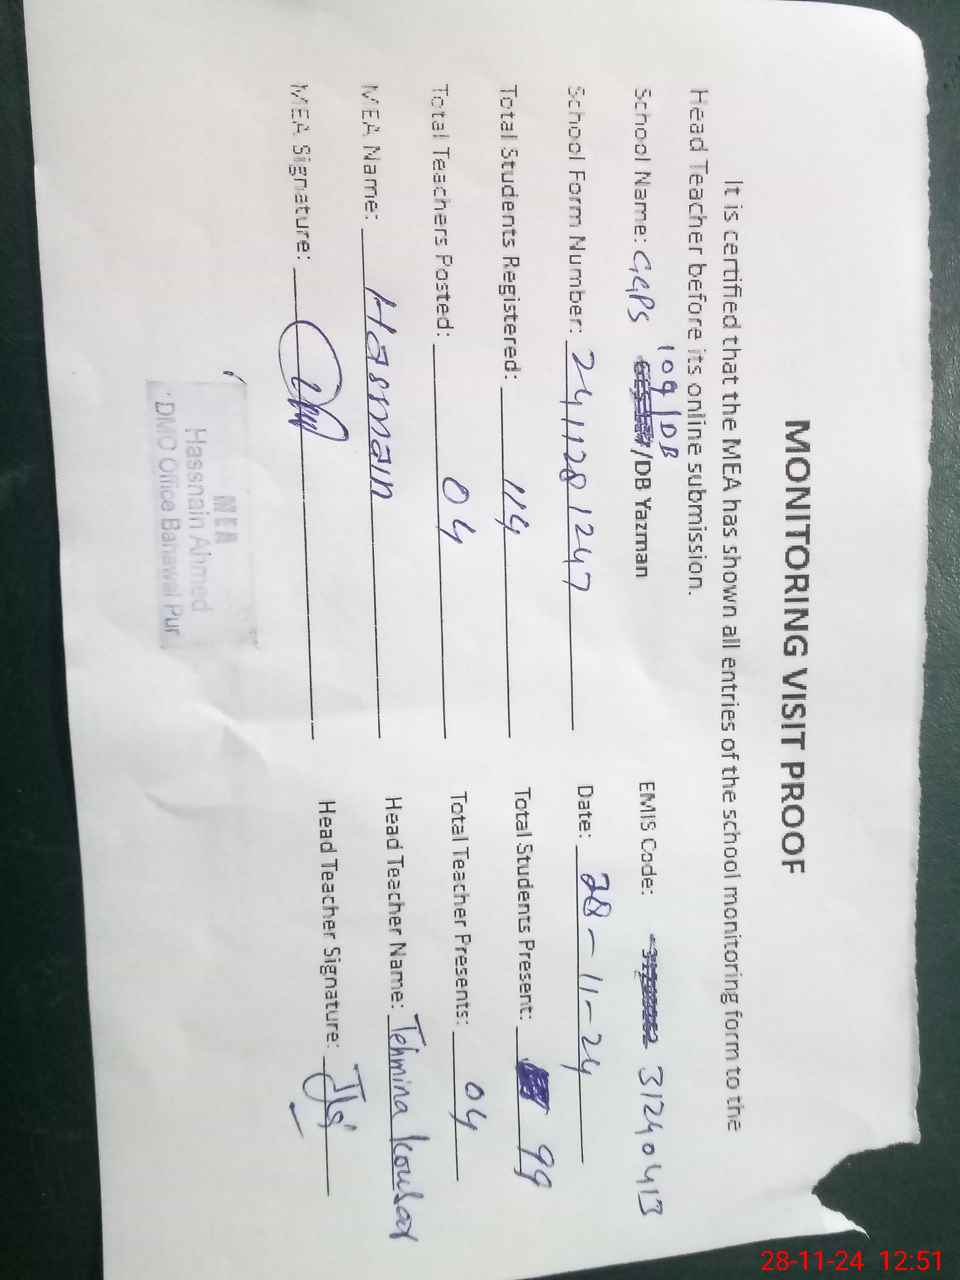 MONITORING VISIT PROOF
It is certified that the MEA has shown all entries of the school monitoring form to the
Head Teacher before its online submission.
109/DB
School Name: GGPS /DB Yazman EMIS Code: 31240413
School Form Number: 241128 1247 Date: 28-11-24
Total Students Registered: 114 Total Students Present: 99
Total Teachers Posted: 04 Total Teacher Presents: 04
MEA Name: Hassnain Head Teacher Name: Tehmina Kousar
MEA Signature: Head Teacher Signature:
MEA
Hassnain Ahmed
DMO Office Bahawal Pur
28-11-24 12:51